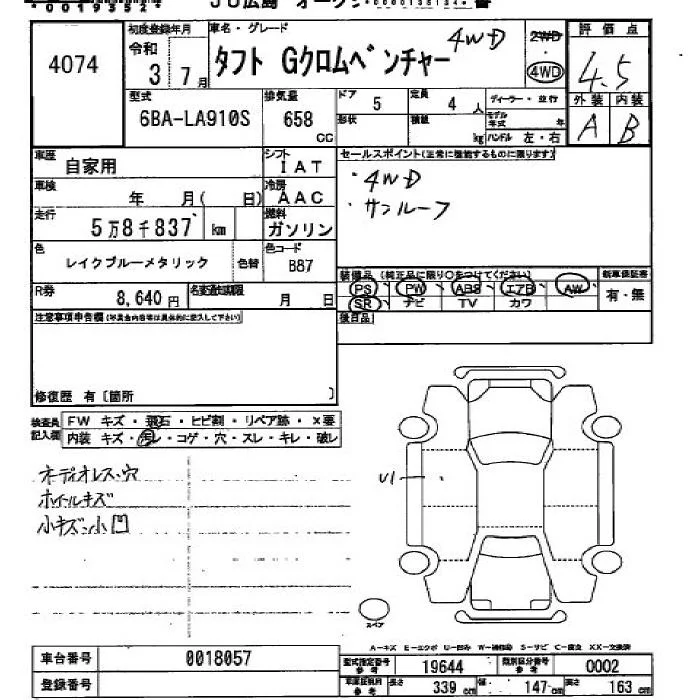 JU広島
4074
初度登録年月
令和
3年7月
車名・グレード
タフト Gクロムベンチャー 4WD
2WD
4WD
評価点
4.5
外装 内装
A B
型式
6BA-LA910S
排気量
658 cc
ドア 5
定員 4人
ディーラー・並行
形状
積載 kg
モデル年式 年
ハンドル 左・右
車歴
自家用
シフト
IAT
セールスポイント(正常に機能するものに限ります)
・4WD
・サンルーフ
車検
年 月( 日)
冷房
AAC
走行
5万8千837 km
燃料
ガソリン
色
レイクブルーメタリック
色替
色コード
B87
装備品(純正品に限り○をつけてください)
PS PW ABS エアB AW
SR ナビ TV カワ
新車保証書
有・無
R券
8,640円
名変通知期限
月 日
後日品
注意事項申告欄(写真会内容等は具体的に記入して下さい)
修復歴 有〔箇所 〕
検査員記入欄
FW キズ・飛石・ヒビ割・リペア跡・X要
内装 キズ・汚レ・コゲ・穴・スレ・キレ・破レ
オーディオレス・穴
ホイールキズ
小キズ小凹
U1
スペア
A-キズ E-エクボ U-凹み W-補修跡 S-サビ C-腐食 XX-交換済
車台番号
0018057
登録番号
型式指定番号参考
19644
類別区分番号参考
0002
車検証用参考
長さ 339 cm
幅 147 cm
高さ 163 cm